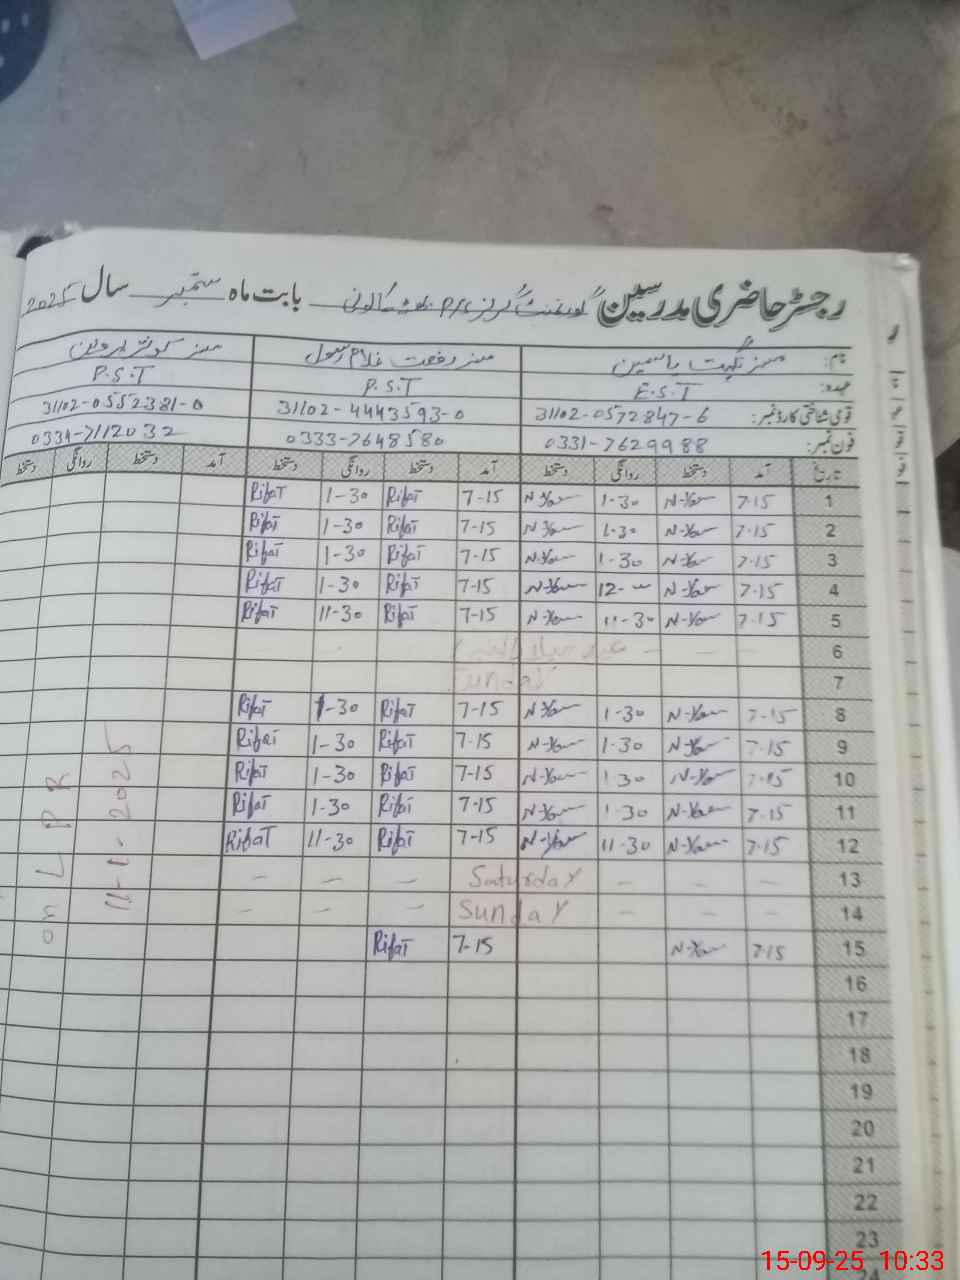 رجسٹر حاضری مدرسین گورنمنٹ گرلز P/S کالونی بابت ماہ ستمبر سال 2025
نام: مسز نگہت یاسمین مسز رفعت غلام رسول مسز کوثر پروین
عہدہ: E.S.T P.S.T P.S.T
قومی شناختی کارڈ نمبر: 31102-0572847-6 31102-4443593-0 31102-0552381-0
فون نمبر: 0331-7629988 0333-7648580 0334-7112032
تاریخ آمد دستخط روانگی دستخط آمد دستخط روانگی دستخط آمد دستخط روانگی دستخط
1 7-15 N-Yas 1-30 N-Yas 7-15 Rifat 1-30 Rifat
2 7-15 N-Yas 1-30 N-Yas 7-15 Rifat 1-30 Rifat
3 7-15 N-Yas 1-30 N-Yas 7-15 Rifat 1-30 Rifat
4 7-15 N-Yas 12- N-Yas 7-15 Rifat 1-30 Rifat
5 7-15 N-Yas 11-30 N-Yas 7-15 Rifat 11-30 Rifat
6 - - - عید میلاد النبی - -
7 Sunday
8 7-15 N-Yas 1-30 N-Yas 7-15 Rifat 1-30 Rifat
9 7-15 N-Yas 1-30 N-Yas 7-15 Rifat 1-30 Rifat
10 7-15 N-Yas 1-30 N-Yas 7-15 Rifat 1-30 Rifat
11 7-15 N-Yas 1-30 N-Yas 7-15 Rifat 1-30 Rifat
12 7-15 N-Yas 11-30 N-Yas 7-15 Rifat 11-30 Rifat
13 - - - Saturday - - -
14 - - - Sunday - - -
15 7-15 N-Yas 7-15 Rifat
16
17
18
19
20
21
22
23
24
on L P R
11-1-2025
15-09-25 10:33